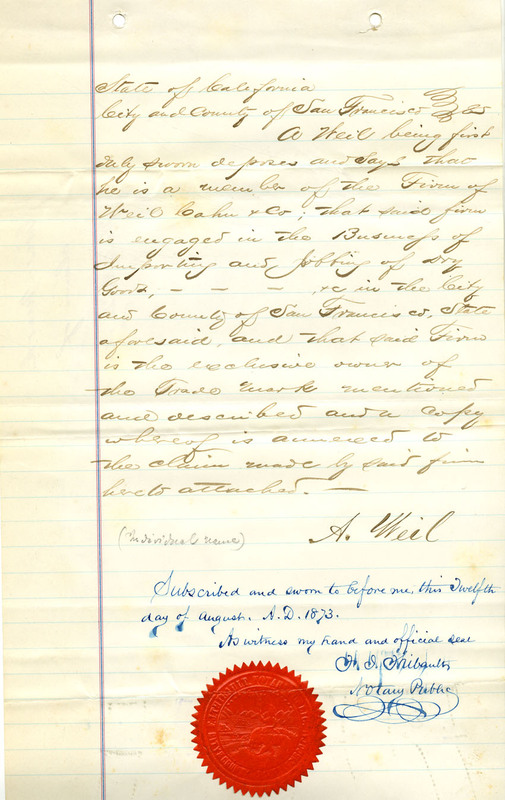 State of California
City and County of San Francisco } ss
A Weil being first
duly sworn deposes and says that
he is a member of the Firm of
Weil Cahn & Co; that said firm
is engaged in the Business of
Importing and Jobbing of Dry
Goods, — — — &c in the City
and County of San Francisco, State
aforesaid, and that said Firm
is the exclusive owner of
the Trade Mark mentioned
and described and a copy
whereof is annexed to
the claim made by said firm
hereto attached. —
A. Weil
(Individual name)
Subscribed and sworn to before me, this Twelfth
day of August. A.D. 1873.
As witness my hand and official seal
Notary Public